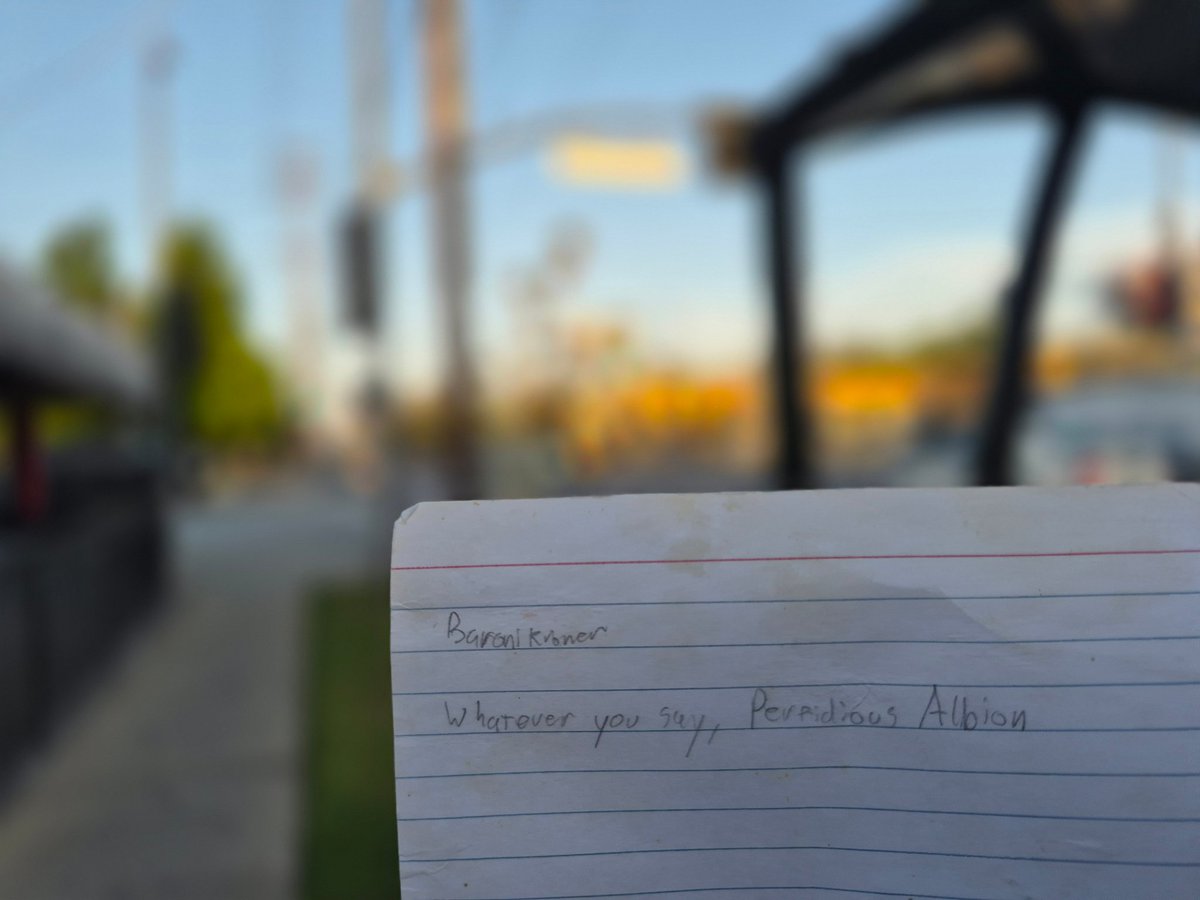 Baronikroner
Whatever you say, Perfidious Albion